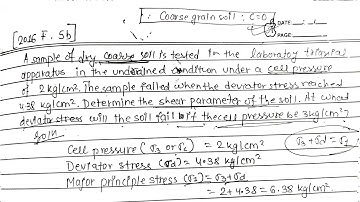 ∴ Coarse grain soil : C=0
DATE
PAGE
[2016 F. 5b]
A sample of dry coarse soil is tested in the laboratory triaxial
apparatus in the undrained condition under a cell pressure
of 2 kg/cm². The sample failed when the deviator stress reached
4.38 kg/cm². Determine the shear parameter of the soil. At what
deviator stress will the soil fail if the cell pressure be 3kg/cm²?
Soln
Cell pressure (σ3 or σc) = 2 kg/cm²
σ3+σd=σ1
Deviator stress (σd) = 4.38 kg/cm²
Major principle stress (σ1) = σ3+σd
= 2+4.38 = 6.38 kg/cm²